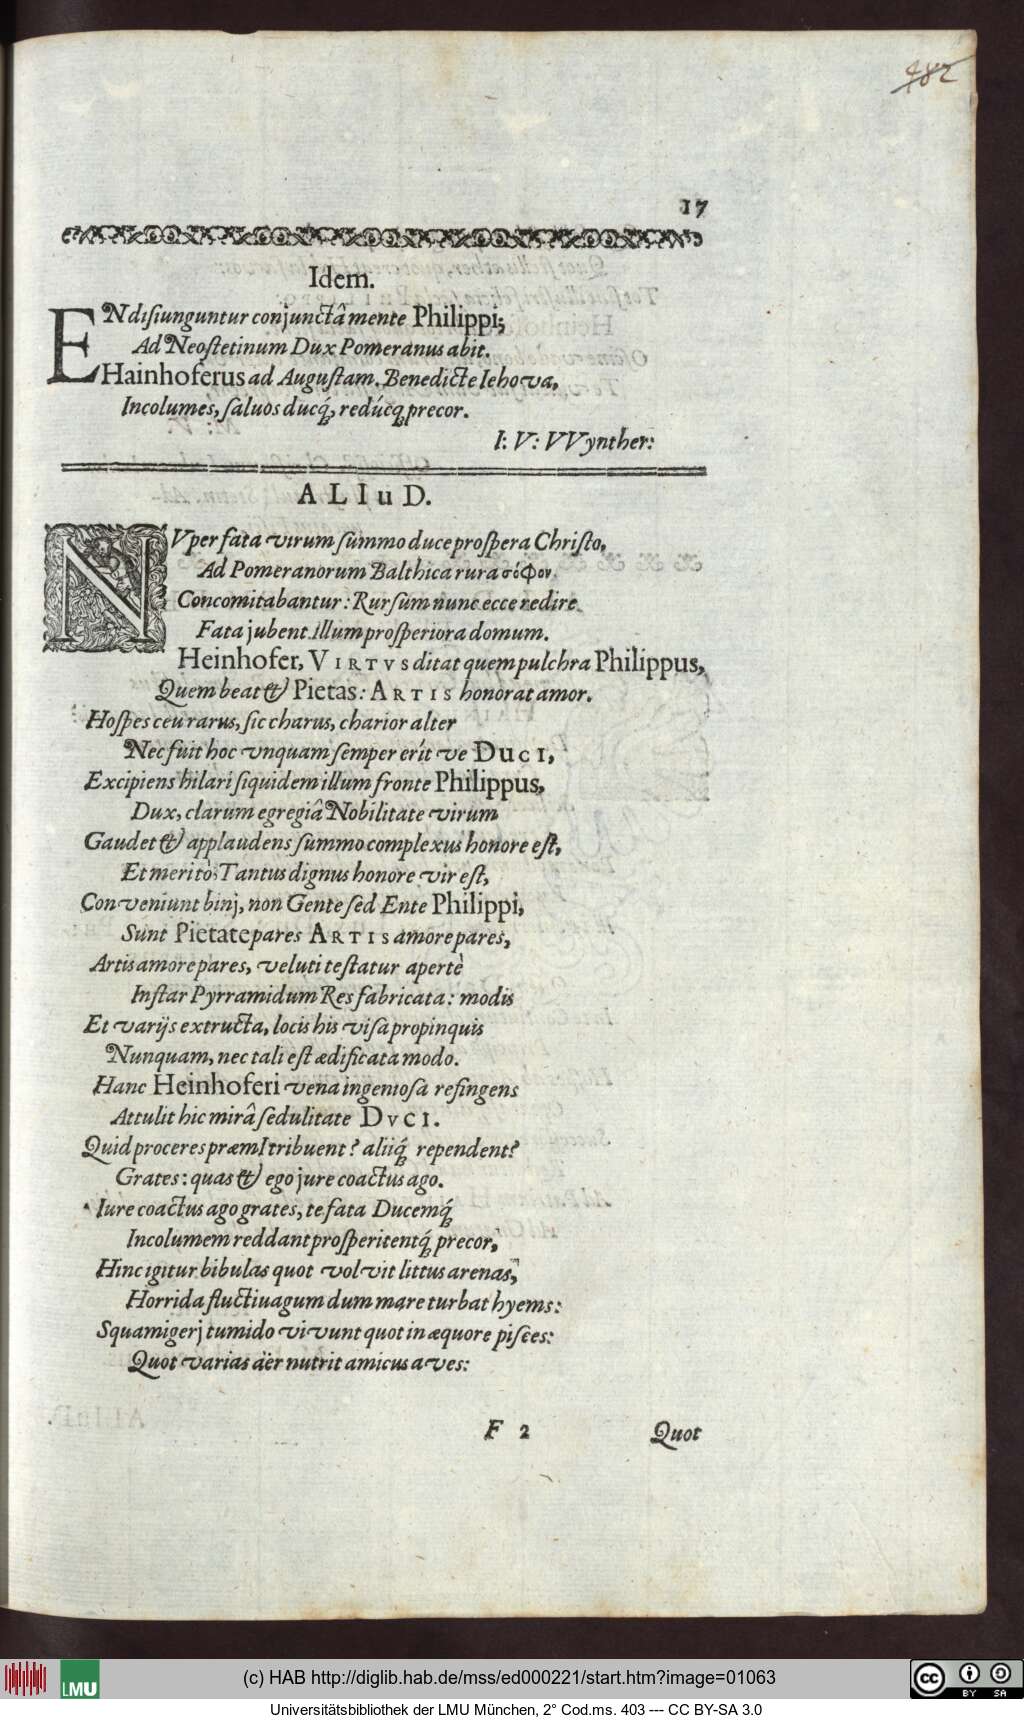 482
17
Idem.
ENdisiunguntur conjunctâ mente Philippi;
Ad Neostetinum Dux Pomeranus abit.
Hainhoferus ad Augustam. Benedicte Iehova,
Incolumes, saluos ducq́, redúcq́ precor.
I: V: VVynther:
ALIuD.
NVper fata virum sũmmo duce prospera Christo,
Ad Pomeranorum Balthica rura σόφον.
Concomitabantur: Rursũm nunc ecce redire
Fata jubent illum prosperiora domum.
Heinhofer, VIRTVS ditat quem pulchra Philippus,
Quem beat & Pietas: ARTIS honorat amor.
Hospes ceu rarus, sic charus, charior alter
Nec fuit hoc vnquam semper erít ve DuCI,
Excipiens hilari siquidem illum fronte Philippus,
Dux, clarum egregiâ Nobilitate virum
Gaudet & applaudens summo complexus honore est,
Et meritò: Tantus dignus honore vir est,
Conveniunt binj, non Gente sed Ente Philippi,
Sunt Pietate pares ARTIS amore pares,
Artis amore pares, veluti testatur apertè
Instar Pyrramidum Res fabricata: modis
Et varijs extructa, locis his visa propinquis
Nunquam, nec tali est ædificata modo.
Hanc Heinhoferi vena ingeniosa refingens
Attulit hic mirâ sedulitate DVCI.
Quid proceres præmI tribuent? aliiq́ rependent?
Grates: quas & ego jure coactus ago.
Iure coactus ago grates, te fata Ducemq́
Incolumem reddant prosperitentq́ precor,
Hinc igitur bibulas quot volvit littus arenas,
Horrida fluctivagum dum mare turbat hyems:
Squamigerj tumido vivunt quot in æquore pisces:
Quot varias aër nutrit amicus aves:
F 2 Quot
(c) HAB http://diglib.hab.de/mss/ed000221/start.htm?image=01063
LMU
cc BY SA
Universitätsbibliothek der LMU München, 2° Cod.ms. 403 --- CC BY-SA 3.0